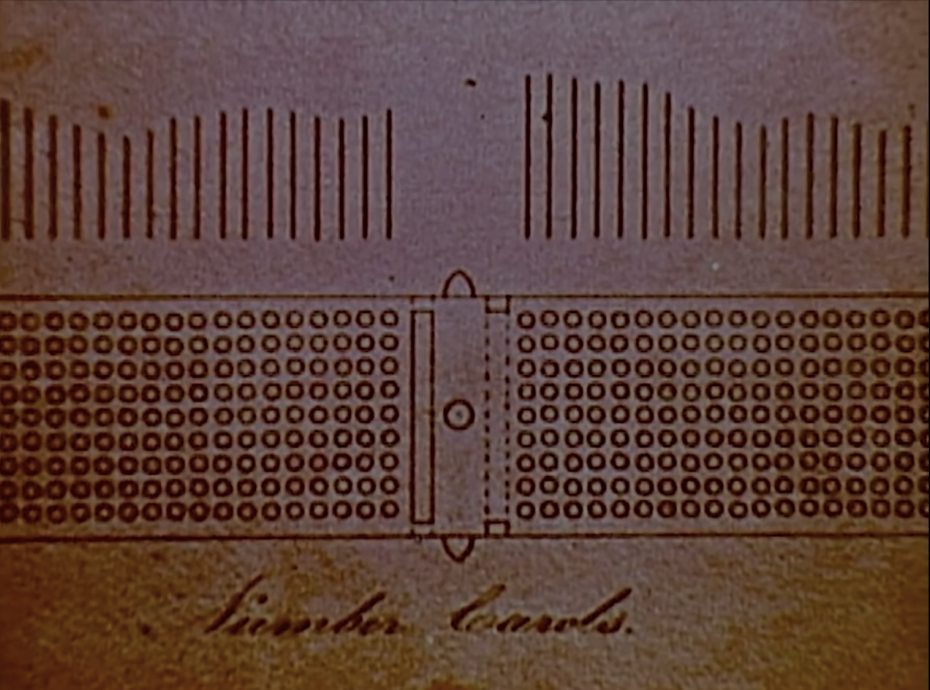 Number Cards.